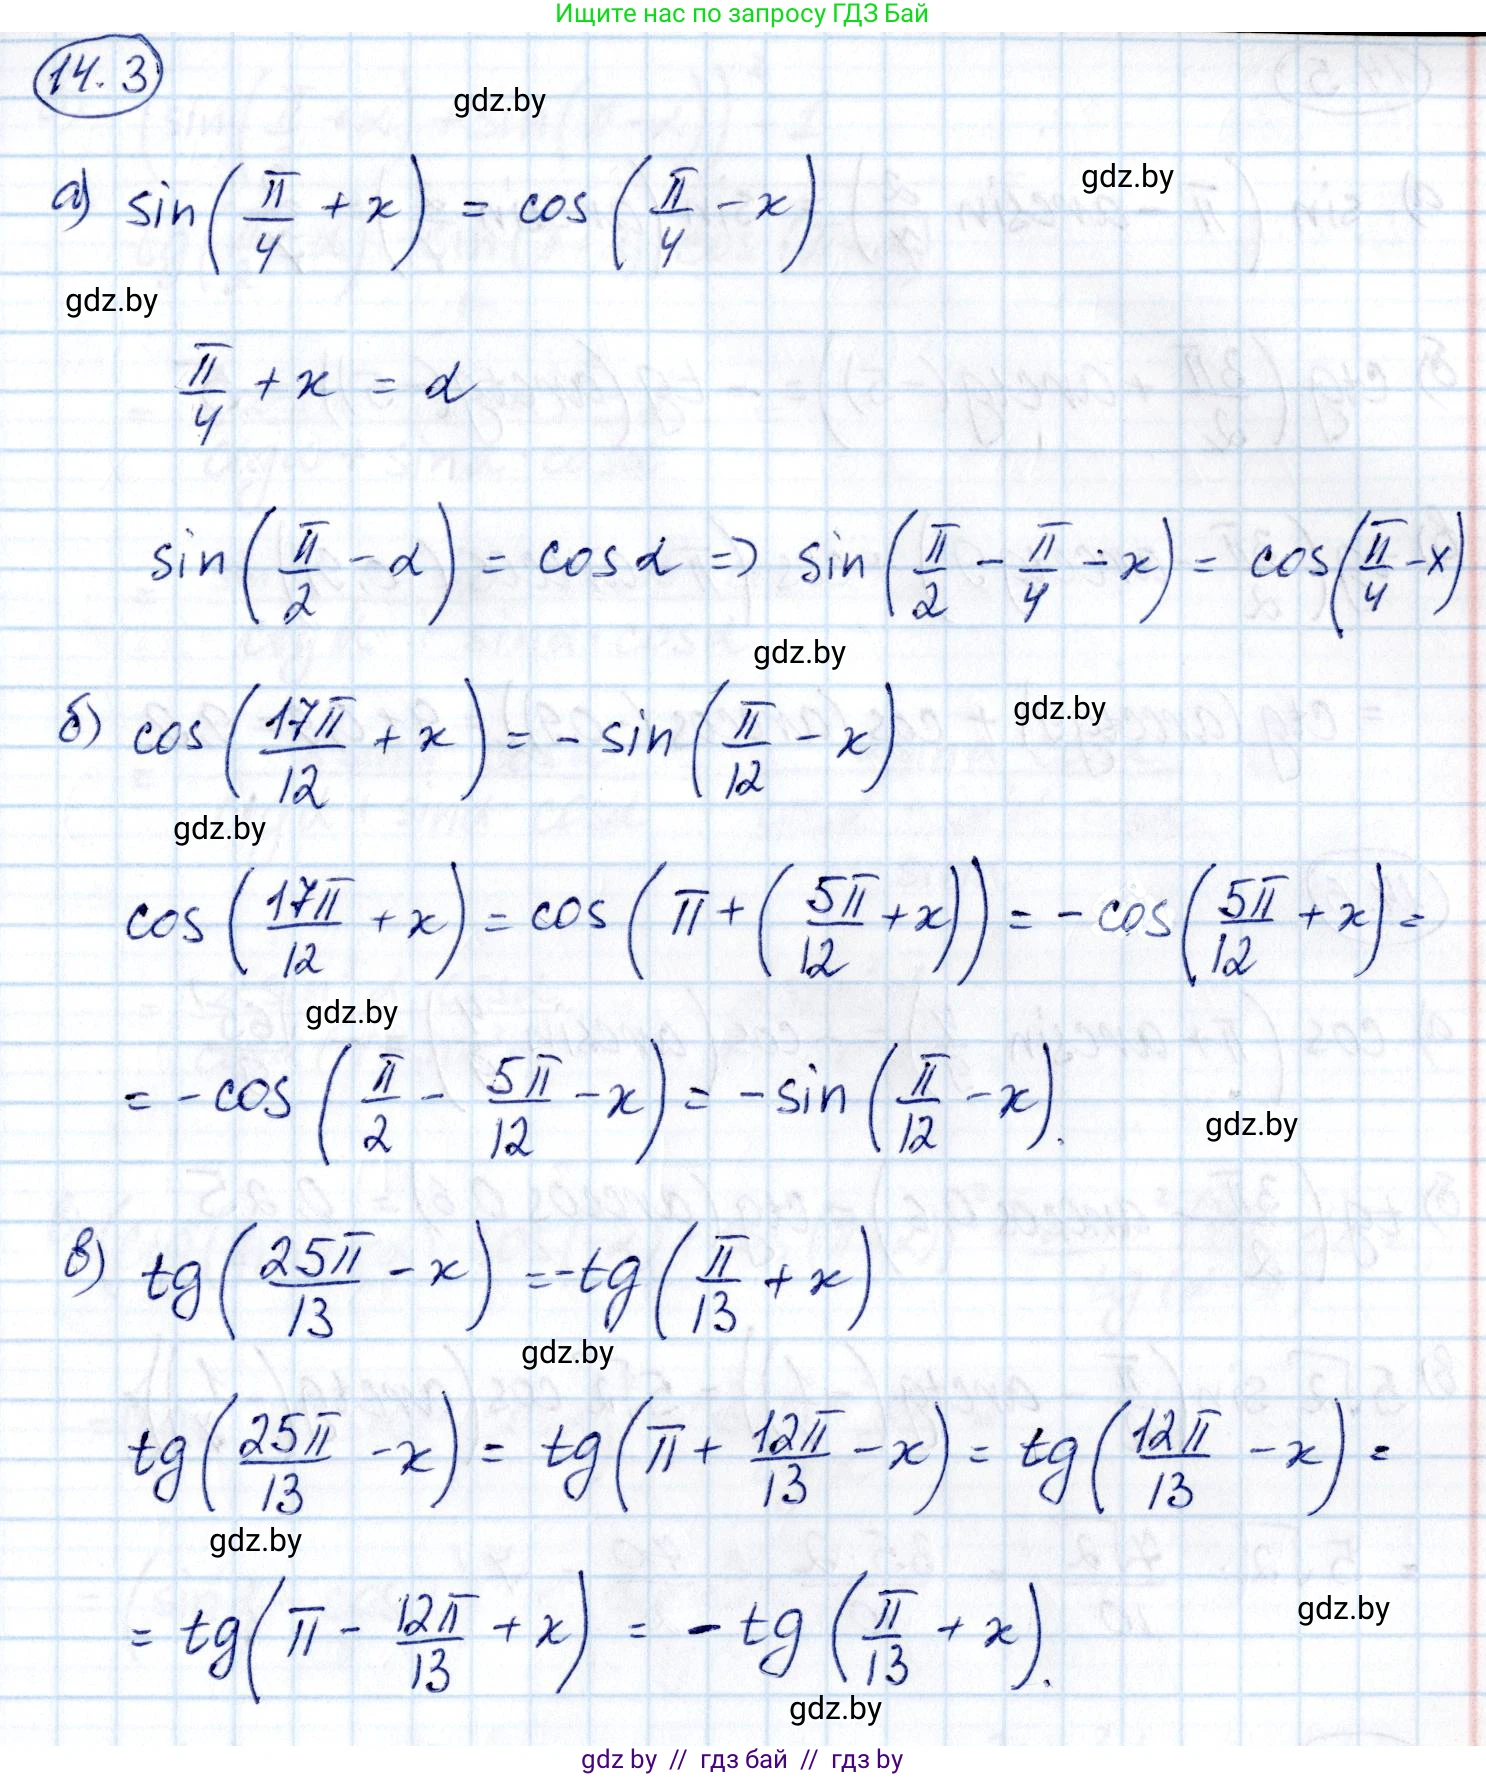 Ищите нас по запросу ГДЗ Бай
14.3
gdz.by
а) sin(π/4 + x) = cos(π/4 - x)
gdz.by
gdz.by
π/4 + x = α
sin(π/2 - α) = cos α => sin(π/2 - π/4 - x) = cos(π/4 - x)
gdz.by
б) cos(17π/12 + x) = - sin(π/12 - x)
gdz.by
gdz.by
cos(17π/12 + x) = cos(π + (5π/12 + x)) = - cos(5π/12 + x) =
gdz.by
= - cos(π/2 - 5π/12 - x) = - sin(π/12 - x).
gdz.by
в) tg(25π/13 - x) = - tg(π/13 + x)
gdz.by
tg(25π/13 - x) = tg(π + 12π/13 - x) = tg(12π/13 - x) =
gdz.by
= tg(π - 12π/13 + x) = - tg(π/13 + x).
gdz.by
gdz.by
gdz by // гдз бай // гдз by